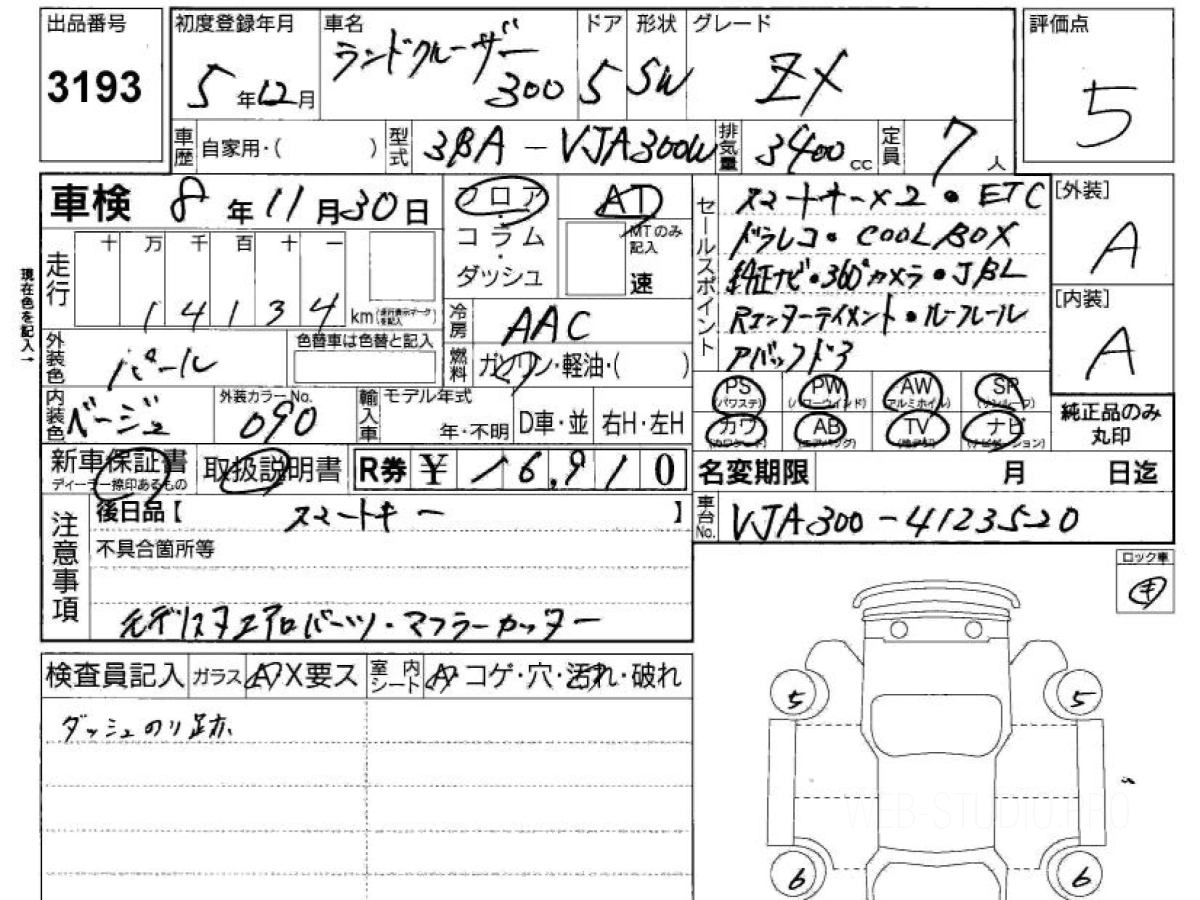 出品番号
3193
初度登録年月
5年12月
車名
ランドクルーザー
300
ドア
5
形状
SW
グレード
ZX
評価点
5
車歴
自家用・( )
型式
3BA - VJA300W
排気量
3400 cc
定員
7人
車検 8年11月30日
フロア
・
コラム
・
ダッシュ
AT
MTのみ
記入
速
セールスポイント
スマートキー×2・ETC
ドラレコ・COOL BOX
純正ナビ・360°カメラ・JBL
Rエンターテイメント・ルーフレール
[外装]
A
[内装]
A
現在色を記入→
走行
十 万 千 百 十 一
1 4 1 3 4 km
冷房
AAC
外装色
パール
色替車は色替と記入
燃料
ガソリン・軽油・( )
内装色
ベージュ
外装カラーNo.
090
輸入車
モデル年式
年・不明
D車・並
右H・左H
PS
(パワステ)
PW
(パワーウィンド)
AW
(アルミホイル)
SR
(サンルーフ)
カワ
(カワシート)
AB
(エアバッグ)
TV
ナビ
(ナビゲーション)
純正品のみ
丸印
新車保証書
ディーラー捺印あるもの
取扱説明書
R券 ¥ 16,910
名変期限 月 日迄
注意事項
後日品【 スマートキー 】
車台No.
VJA300-4123520
不具合箇所等
モデリスタエアロパーツ・マフラーカッター
ロック車
キ
検査員記入
ガラス
A X要ス
室内
シート
A・コゲ・穴・汚れ・破れ
ダッシュのり跡
5
5
6
6
WEB-STUDIO.PRO